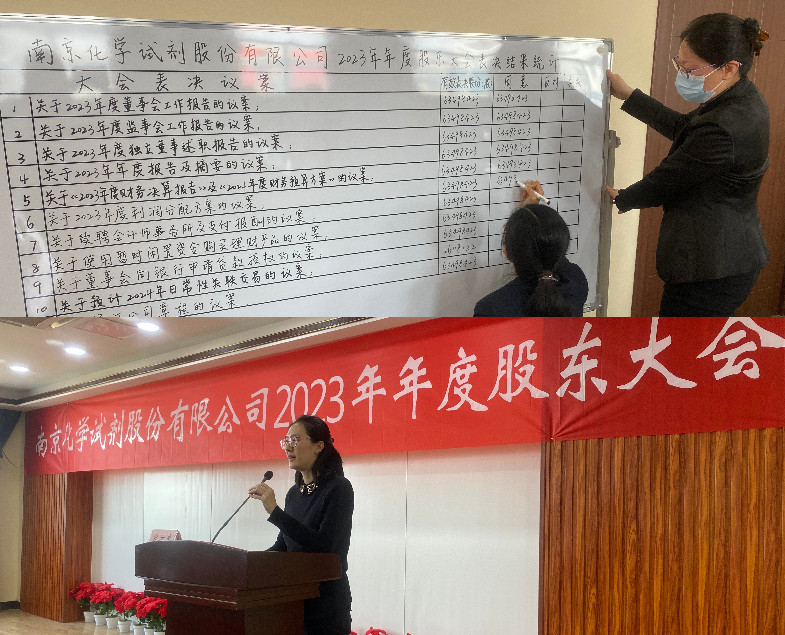 南京化学试剂股份有限公司2023年年度股东大会表决结果统计
大会表决议案 同意 反对
1 关于2023年度董事会工作报告的议案;
2 关于2023年度监事会工作报告的议案;
3 关于2023年度独立董事述职报告的议案;
4 关于2023年年度报告及摘要的议案;
5 关于《2023年度财务决算报告》及《2024年度财务预算方案》的议案;
6 关于2023年度利润分配方案的议案;
7 关于续聘会计师事务所及支付报酬的议案;
8 关于使用暂时闲置资金购买理财产品的议案;
9 关于董事会向银行申请贷款授权的议案;
10 关于预计2024年日常性关联交易的议案;
公司章程的议案
南京化学试剂股份有限公司2023年年度股东大会